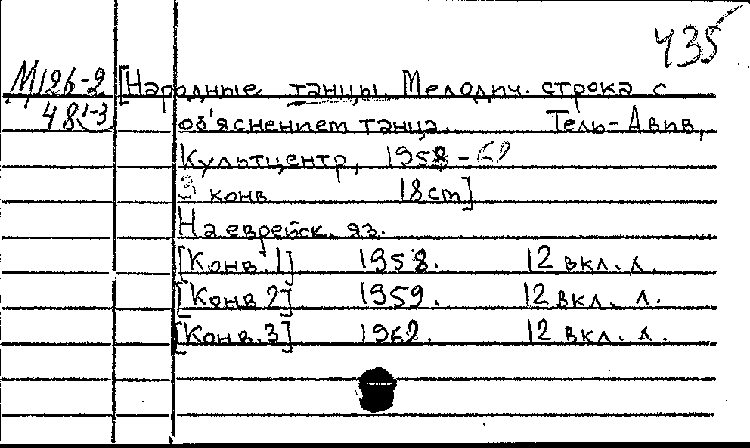 435
М126-2 [Народные танцы. Мелодич. строка с
48 1-3 об'яснением танца. Тель-Авив,
Культцентр, 1958-62
3 конв 18 cm]
На еврейск. яз.
[Конв. 1] 1958. 12 вкл. л.
[Конв 2] 1959. 12 вкл. л.
[Конв. 3] 1962. 12 вкл. л.